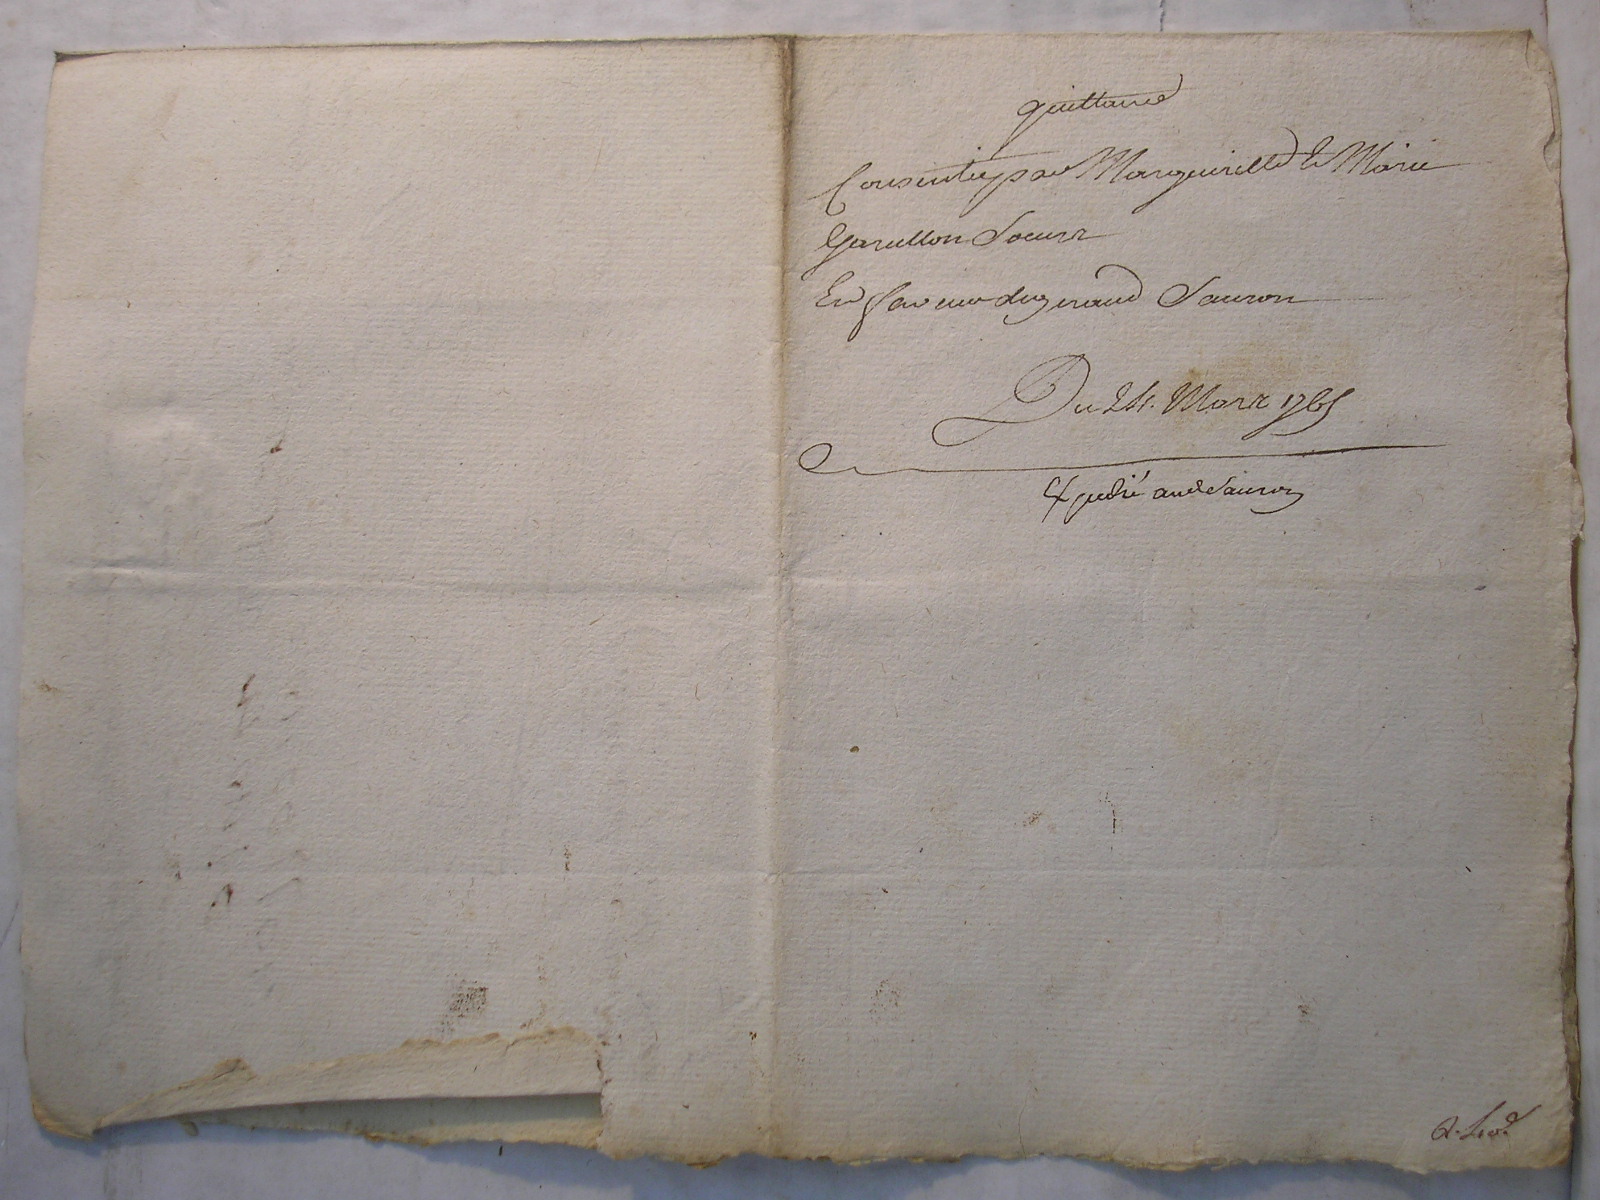 quittance
Consentie par Margueritte et Marie
Garillon Soeurs
En faveur du geraud Sauron
Du 24. Mars 1765
Expedié aud Sauron